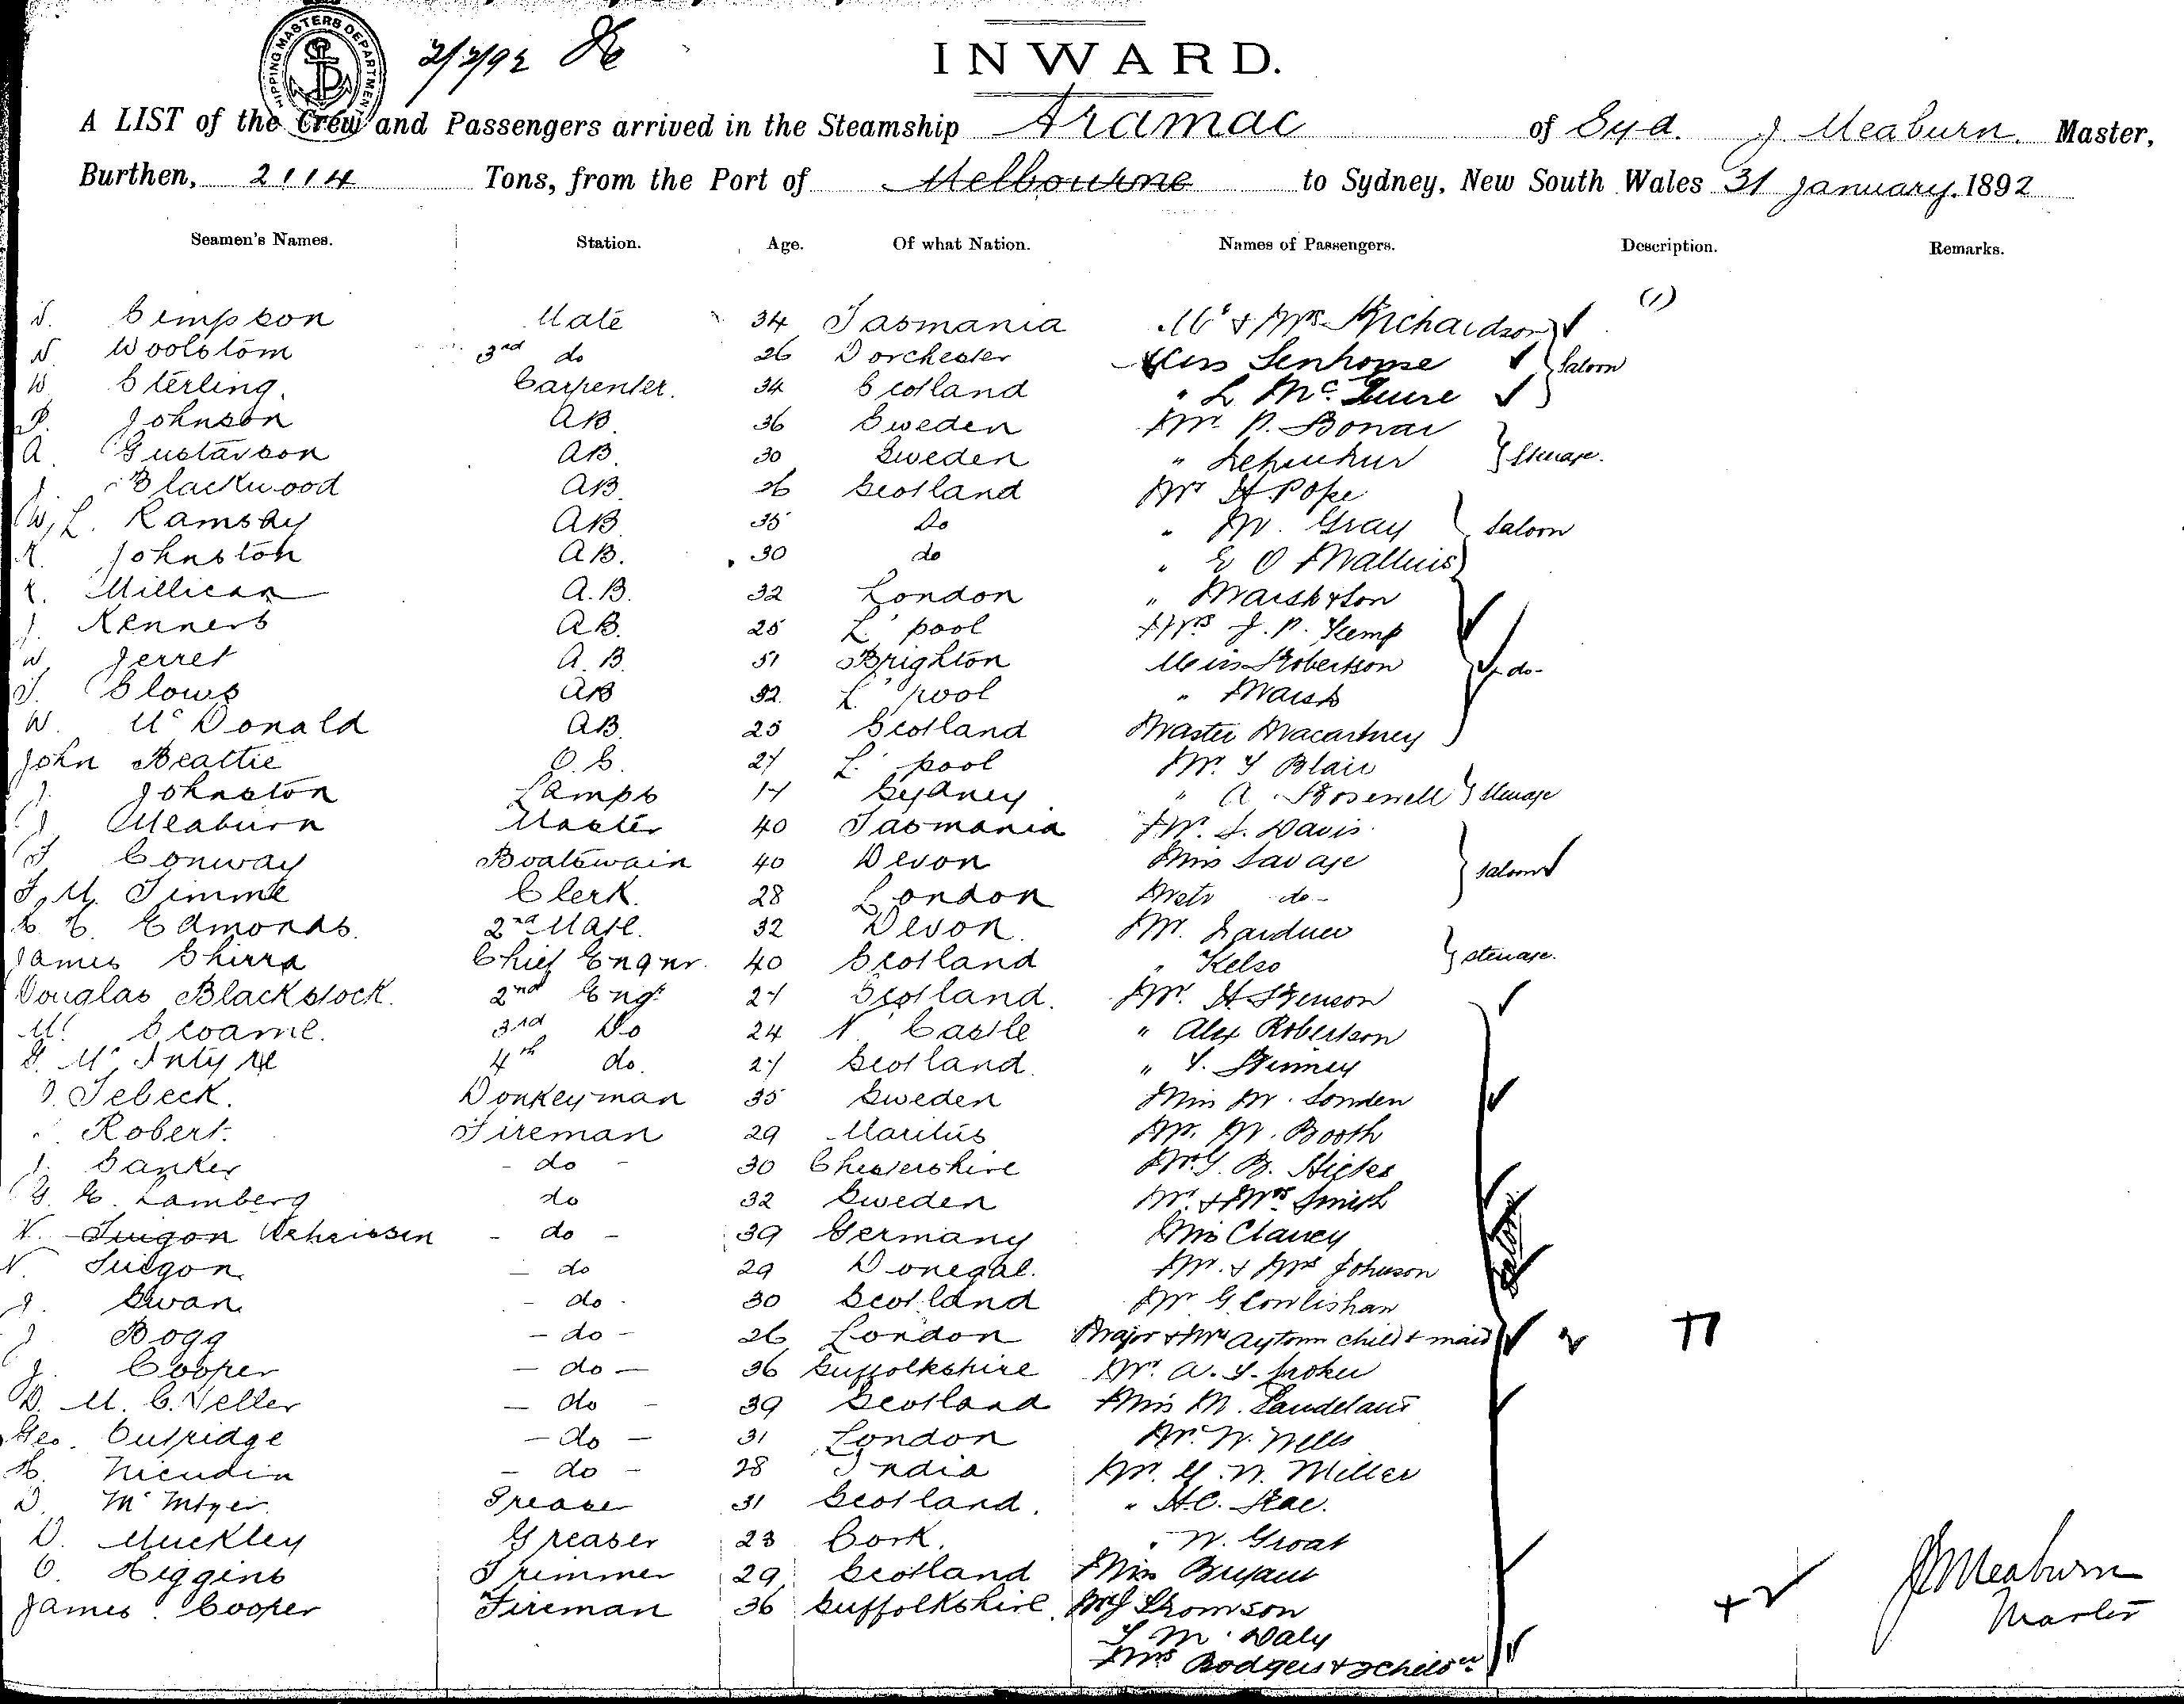 SHIPPING MASTERS DEPARTMENT
2/2/92
INWARD.
A LIST of the Crew and Passengers arrived in the Steamship Aramac of Syd. J Meaburn. Master,
Burthen, 2114 Tons, from the Port of Melbourne to Sydney, New South Wales 31 January. 1892
Seamen's Names. Station. Age. Of what Nation. Names of Passengers. Description. Remarks.
(1)
Simpson Mate 34 Tasmania Mr & Mrs Richardson
Woolstom 3rd do 26 Dorchester Miss Senhouse Saloon
W Sterling. Carpenter. 34 Scotland " L Mc
Johnson AB. 36 Sweden Mr. P. Bonar
A Gustavson AB. 30 Sweden " Steerage.
Blackwood AB 26 Scotland Mr H Pope
W, L. Ramsay AB. 35 Do " M. Gray Saloon
Johnston AB. 30 do " E O
Millican A.B. 32 London " Marsh & Son
J. Kenners AB. 25 L'pool Mrs J. P. Kemp
W Jerret A.B. 51 Brighton Miss Robertson do-
Slows AB 32. L'pool " Marsh
W. Mc Donald AB. 25 Scotland Master Macartney
John Beattie O.S. 21 L'pool Mr. T Blair
J. Johnston Lamps 17 Sydney " A. Rosewell Steerage
J Meaburn Master 40 Tasmania Mr. S. Davis
Conway Boatswain 40 Devon Miss Savage Saloon
F. M. Timme Clerk. 28 London Mstr do-
Edmonds. 2nd Mate. 32 Devon. Mr. Gardner
James Shirra Chief Engnr. 40 Scotland " Kelso steerage.
Douglas Blackstock. 2nd Engr 27 Scotland. Mr. H. Benson
3rd Do 24 N. Castle " Alex Robertson
Mc Intyre 4th do. 27 Scotland. " T.
Sebeck. Donkeyman 35 Sweden Miss M. Sonden
Robert. Fireman 29 Maritus Mr. M. Booth
Banker - do - 30 Chestershire Mr. G. B. Hickes
G. E. Lamberg do 32 Sweden Mr. & Mrs Smith
N. Suigon Wehrissen - do - 39 Germany Miss Clancy Saloon
N. Suigon. - do 29 Donegal. Mr. & Mrs Johnson
J. Swan. - do - 30 Scotland Mr G Cowlishaw
J Bogg - do - 26 London Major & Mrs Aytoun child & maid
J. Cooper - do - 36 Suffolkshire Mr. A. S.
D. M. C. Veller - do - 39 Scotland Miss M. Sandeland
Geo. Cutridge - do - 31 London Mr. W. Wells
Nicudin - do - 28 India Mr. G. W. Miller
D. Greaser 31 Scotland. " H.C. Rae.
D. Muckley Greaser 23 Cork. " W. Groat
O. Higgins Trimmer 29 Scotland Miss Bryant
James Cooper Fireman 36 Suffolkshire. Mr J Thomson
T. M. Daly
Mrs Rodgers & 2 childn
J Meaburn
Master